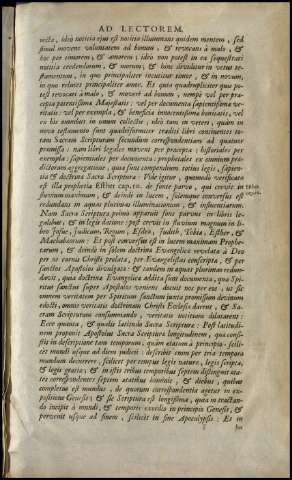 AD LECTOREM.
recta, ideo notitia ejus est notitia illuminans quidem mentem, sed
simul movens voluntatem ad bonum, & revocans à malo, &
hoc per timorem, & amorem; ideo non potest in ea sequestrari
notitia credendorum, & morum; & hinc dividitur in vetus te-
stamentum, in quo principaliter incutitur timor, & in novum,
in quo relucet principaliter amor. Et quia quadrupliciter quis po-
test revocari à malo, & moveri ad bonum, nempè vel per præ-
cepta potentissimæ Majestatis; vel per documenta sapientissimæ ve-
ritatis: vel per exempla, & beneficia innocentissimæ bonitatis, vel
ex his omnibus in unum collectis; ideo tam in veteri, quam in
nova testamento sunt quadriformiter traditi libri continentes to-
tam Sacram Scripturam secundum correspondentiam ad quatuor
præmissa: nam libri legales movent per præcepta: historiales per
exempla: sapientiales per documenta: prophetales ex omnium præ-
dictorum aggregatione, quia sunt compendium totius legis, sapien-
tiæ & doctrinæ Sacræ Scripturæ. Vide igitur, quomodo verificata
est illa prophetia Esther cap. 10. de fonte parvo, qui crevit in
fluvium maximum, & deindè in lucem, solemque conversus est
redundans in aquas plurimas illuminationum, & instructionum.
Nam Sacra Scriptura primo apparuit fons parvus in libris le-
galibus, & in legis datione: post crevit in fluvium magnum in li-
bros Josue, Judicum, Regum, Esdræ, Judith, Tobiæ, Esther, &
Machabæorum: Et post conversus est in lucem maximam Propheta-
rum, & deindè in solem doctrinæ Evangelicæ revelatæ à Deo
per os carnis Christi prolatæ, per Evangelistas conscriptæ, & per
sanctos Apostolos divulgatæ: & tandem in aquas plurimas redun-
davit, quia doctrinæ Evangelicæ addita sunt documenta, quæ Spi-
ritus sanctus super Apostolos veniens docuit nos per eos, ut sic
omnem veritatem per Spiritum sanctum juxta promissum devotum
edocti, omnis veritatis doctrinam Christi Ecclesia darent, & Sa-
cram Scripturam consummando, veritatis notitiam dilatarent:
Ecce quanta, & qualis latitudo Sacræ Scripturæ: Post latitudi-
nem proponit Apostolus Sacræ Scripturæ longitudinem, quæ consi-
stit in descriptione tam temporum, quàm ætatum à principio, scili-
cet mundi usque ad diem judicii: describit enim per tria tempora
mundum decurrere, scilicet per tempus legis naturæ, legis scriptæ,
& legis gratiæ; & in istis tribus temporibus septem distinguit æta-
tes correspondentes septem ætatibus hominis, & diebus, quibus
completus est mundus, de quorum correspondentia agetur in ex-
positione Genesis: & sic Scriptura est longissima, quia in tractan-
do incipit à mundi, & temporis exordio in principio Genesis, &
pervenit usque ad finem, scilicet in fine Apocalypsis: Et in